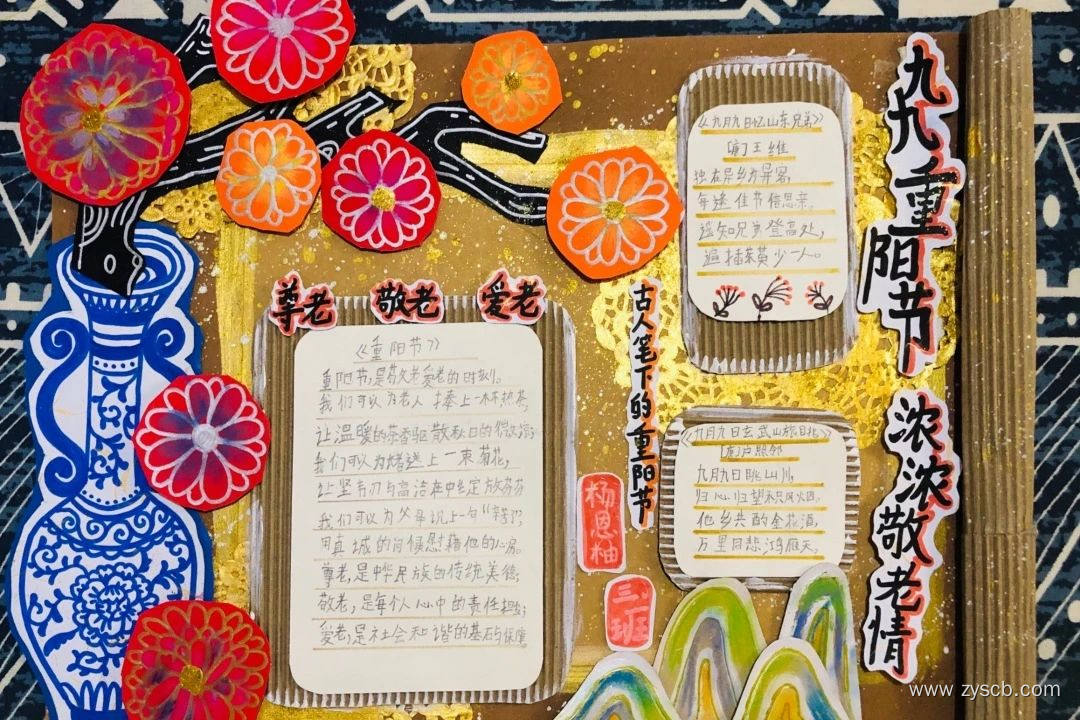 九九重阳节
浓浓敬老情
尊老 敬老 爱老
《重阳节》
重阳节,是敬老爱老的时刻。
我们可以为老人捧上一杯热茶,
让温暖的茶香驱散秋日的
我们可以为 送上一束菊花,
让坚韧与高洁在中绽放芬芳
我们可以为父母说上一句“辛苦”,
用真诚的问候慰藉他的心房。
尊老,是中华民族的传统美德;
敬老,是每个人心中的责任担当;
爱老,是社会和谐的基石与保障
古人笔下的重阳节
《九月九日忆山东兄弟》
[唐]王维
独在异乡为异客,
每逢佳节倍思亲。
遥知兄弟登高处,
遍插茱萸少一人。
《九月九日玄武山旅日北》
[唐]卢照邻
九月九日眺山川,
归心归望积风烟。
他乡共酌金花酒,
万里同悲鸿雁天。
杨恩柚
三.班
www.zyscb.com